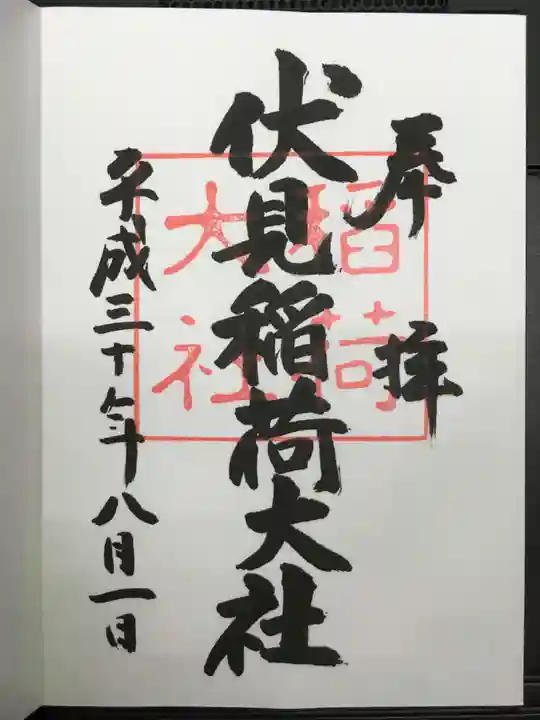 奉拝
伏見稲荷大社
稲荷
大社
平成三十年八月一日